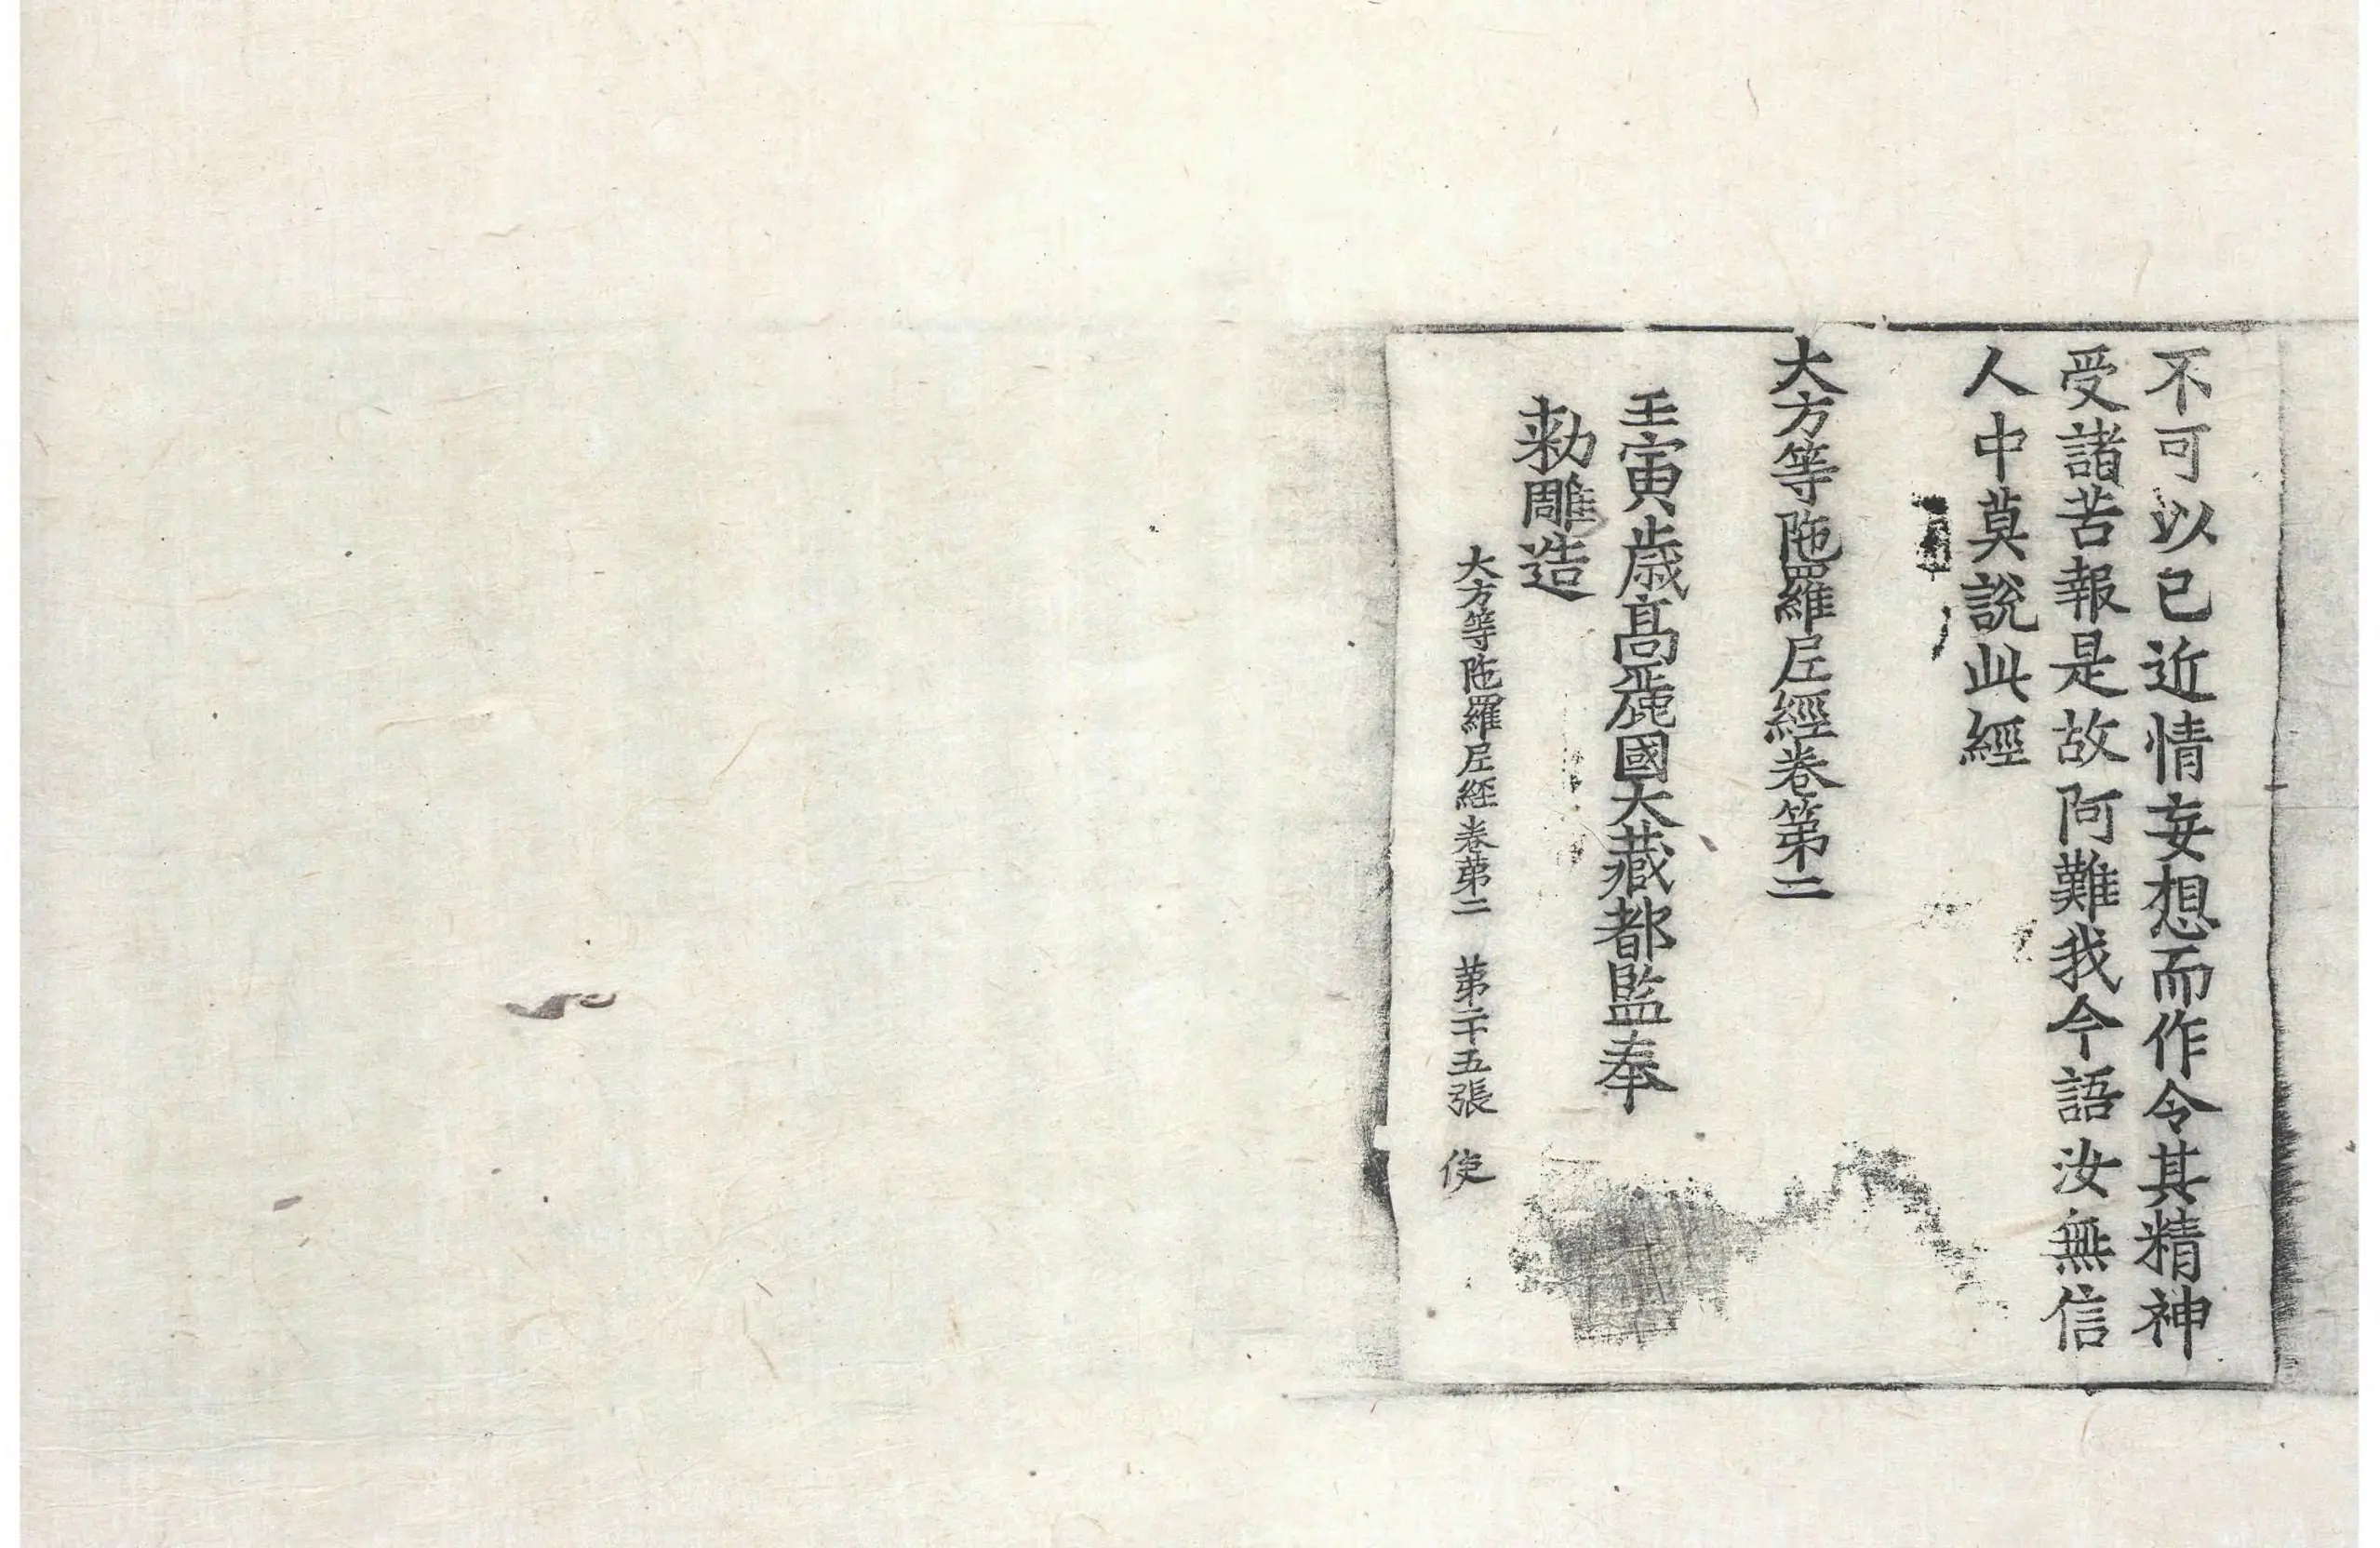 不可以已近情妄想而作令其精神
受諸苦報是故阿難我今語汝無信
人中莫說此經
大方等陁羅尼經卷第二
壬寅歲高麗國大藏都監奉
勅雕造
大方等陁羅尼経卷苐二 苐二十五張 使